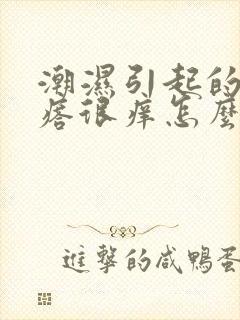 潮濕引起的
痞很痒怎麽
進擊的咸鴨蛋